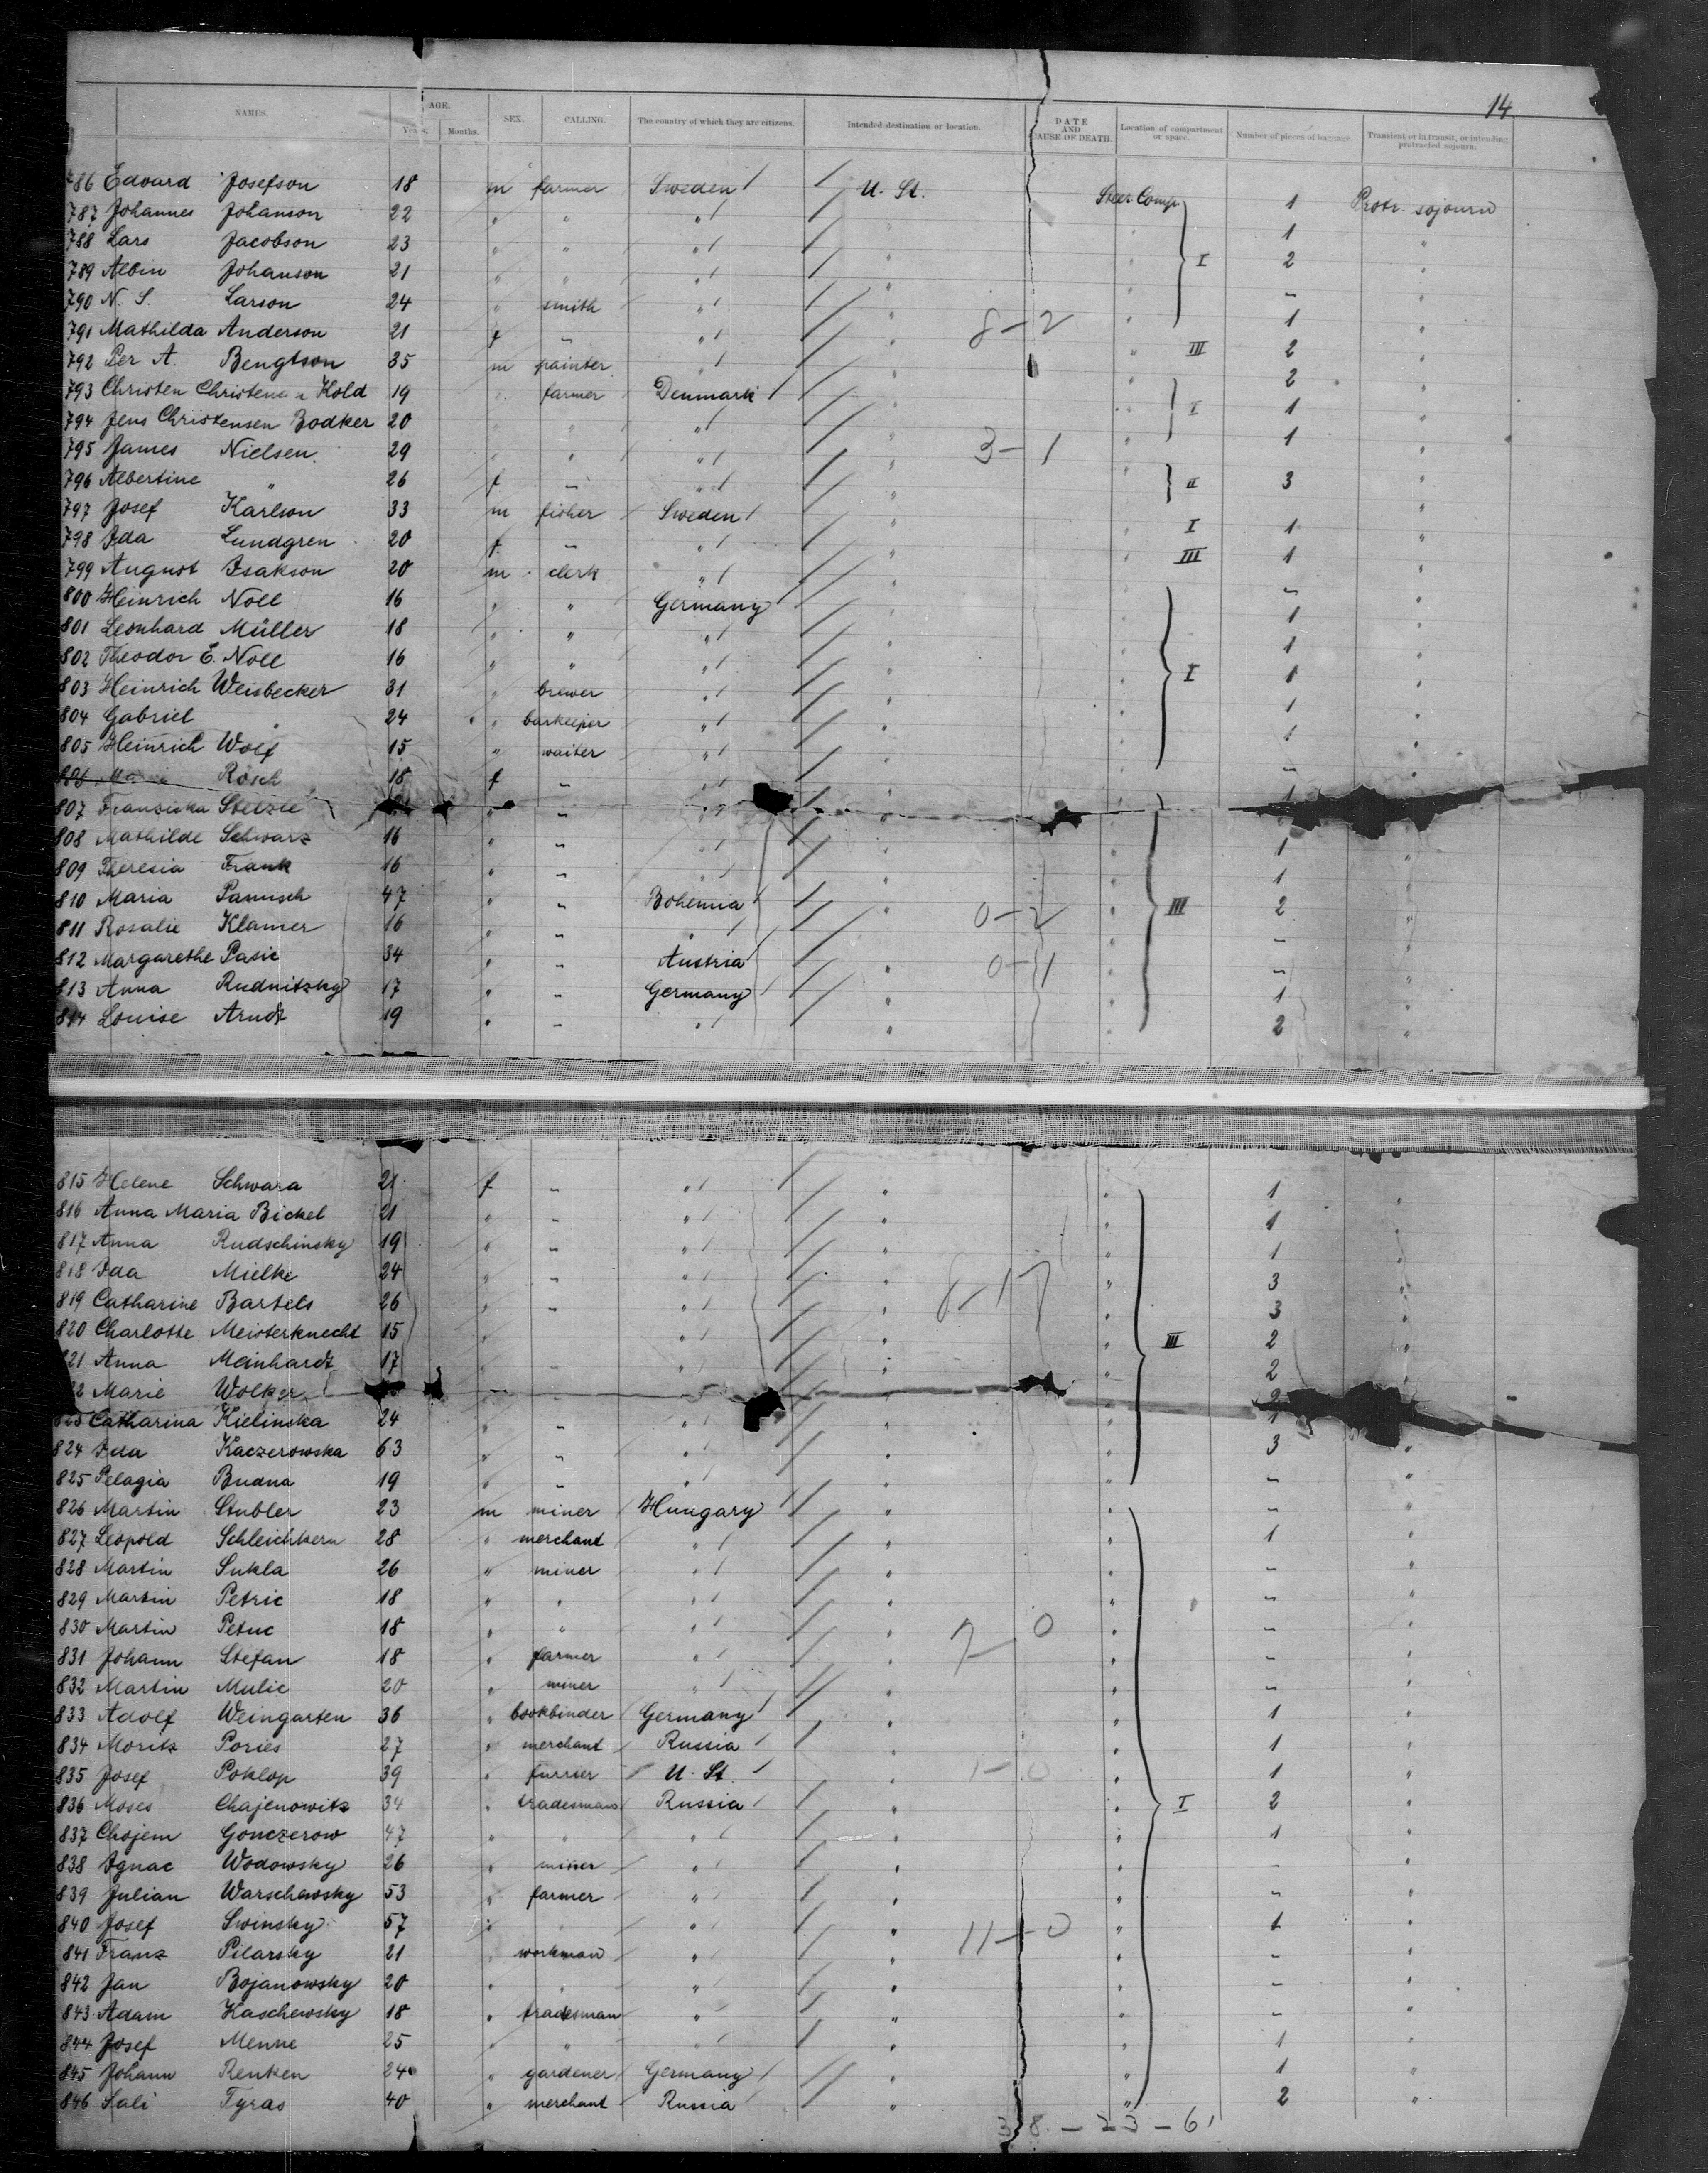 14
NAMES. AGE. SEX. CALLING. The country of which they are citizens. Intended destination or location. DATE AND CAUSE OF DEATH. Location of compartment or space. Number of pieces of baggage. Transient or in transit, or intending protracted sojourn.
Years. Months.
786 Edvard Josefson 18 m farmer Sweden U. St. Steer. Comp. 1 Protr. sojourn
787 Johannes Johanson 22 " " " " " 1 "
788 Lars Jacobson 23 " " " " " I 2 "
789 Albin Johanson 21 " " " " " – "
790 N. S. Larson 24 " smith " " " 1 "
791 Mathilda Anderson 21 f – " " 8–2 " III 2 "
792 Per A. Bengtson 35 m painter " " " 2 "
793 Christen Kold 19 " farmer Denmark " " I 1 "
794 Jens Christensen Bodker 20 " " " " " 1 "
795 James Nielsen 29 " " " " 3–1 "
796 Albertine " 26 f – " " " II 3 "
797 Josef Karlson 33 m fisher Sweden " " I 1 "
798 Ida Lundgren 20 f – " " " III 1 "
799 August Isakson 20 m clerk " " " – "
800 Heinrich Noll 16 " " Germany " " 1 "
801 Leonhard Müller 18 " " " " " 1 "
802 Theodor E. Noll 16 " " " " " I 1 "
803 Heinrich Weisbecker 31 " brewer " " " 1 "
804 Gabriel " 24 " barkeeper " " " 1 "
805 Heinrich Wolf 15 " waiter " " " – "
806 Rosch 18 f – " " " 1
807 Franziska Stelzle " " "
808 Mathilde Schwarz 16 " – " " " 1 "
809 Theresia Frank 16 " – " " " 1 "
810 Maria Panusch 47 " – Bohemia " 0–2 " III 2 "
811 Rosalie Klamer 16 " – " " " – "
812 Margarethe Pasic 34 " – Austria " 0–1 " – "
813 Anna Rudnitzky 17 " – Germany " " 1 "
814 Louise Arndt 19 " – " " " 2 "
815 Helene Schwara 21 f – " " " 1 "
816 Anna Maria Bickel 21 " – " " " 1 "
817 Anna Rudschinsky 19 " – " " " 1 "
818 Ida Mielke 24 " – " " 8–17 " 3 "
819 Catharine Bartels 26 " – " " " 3 "
820 Charlotte Meisterknecht 15 " – " " " III 2 "
821 Anna Meinhardt 17 " – " " " 2 "
22 Marie Wolker – – " " " 2
823 Catharina Kielinska 24 " – " " " 1
824 Ida Kaczerowska 63 " – " " " 3 "
825 Pelagia Budna 19 " – " " " – "
826 Martin Stubler 23 m miner Hungary " " – "
827 Leopold Schleichkern 28 " merchant " " " 1 "
828 Martin Sukla 26 " miner " " " – "
829 Martin Petric 18 " " " " " – "
830 Martin Petuc 18 " " " " 7–0 " – "
831 Johann Stefan 18 " farmer " " " – "
832 Martin Mulic 20 " miner " " " – "
833 Adolf Weingarten 36 " bookbinder Germany " " 1 "
834 Moritz Pories 27 " merchant Russia " " 1 "
835 Josef Poklop 39 " furrier U. St. " 1–0 " 1 "
836 Moses Chajenowitz 34 " tradesman Russia " " I 2 "
837 Chojem Gonczerow 47 " " " " " 1 "
838 Ignac Wodowsky 26 " miner " " " – "
839 Julian Warschawsky 53 " farmer " " " – "
840 Josef Swinsky 57 " " " " 11–0 " 1 "
841 Franz Pilarsky 21 " workman " " " – "
842 Jan Bojanowsky 20 " " " " " – "
843 Adam Kaschewsky 18 " tradesman " " " – "
844 Josef Menne 25 " " " " " 1 "
845 Johann Renken 24 " gardener Germany " " 1 "
846 Sali Tyras 40 " merchant Russia " " 2 "
38 – 23 – 61